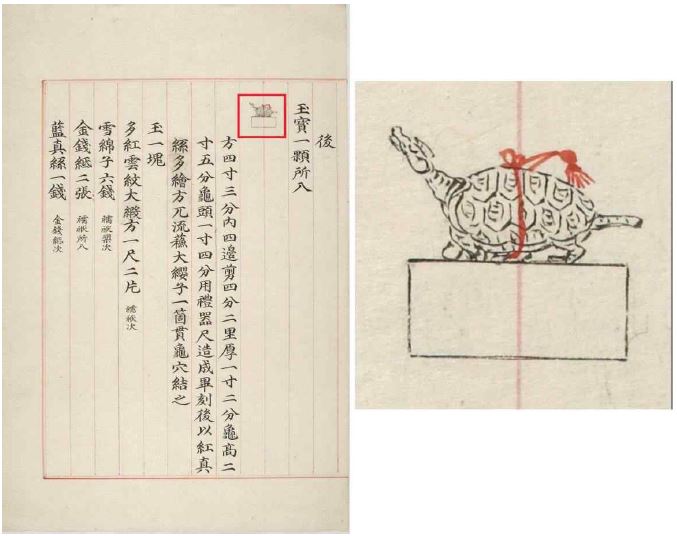 後
玉寶一顆所入
方四寸三分內四邊剪四分二里厚一寸二分龜高二
寸五分龜頭一寸四分用禮器尺造成畢刻後以紅真
絲多繪方兀流蘓大纓子一箇貫龜穴結之
玉一塊
多紅雲紋大緞方一尺二片 襦袱次
雪綿子六錢 襦袱槊次
金錢紙二張 襦袱所入
藍真絲一錢 金錢紙次